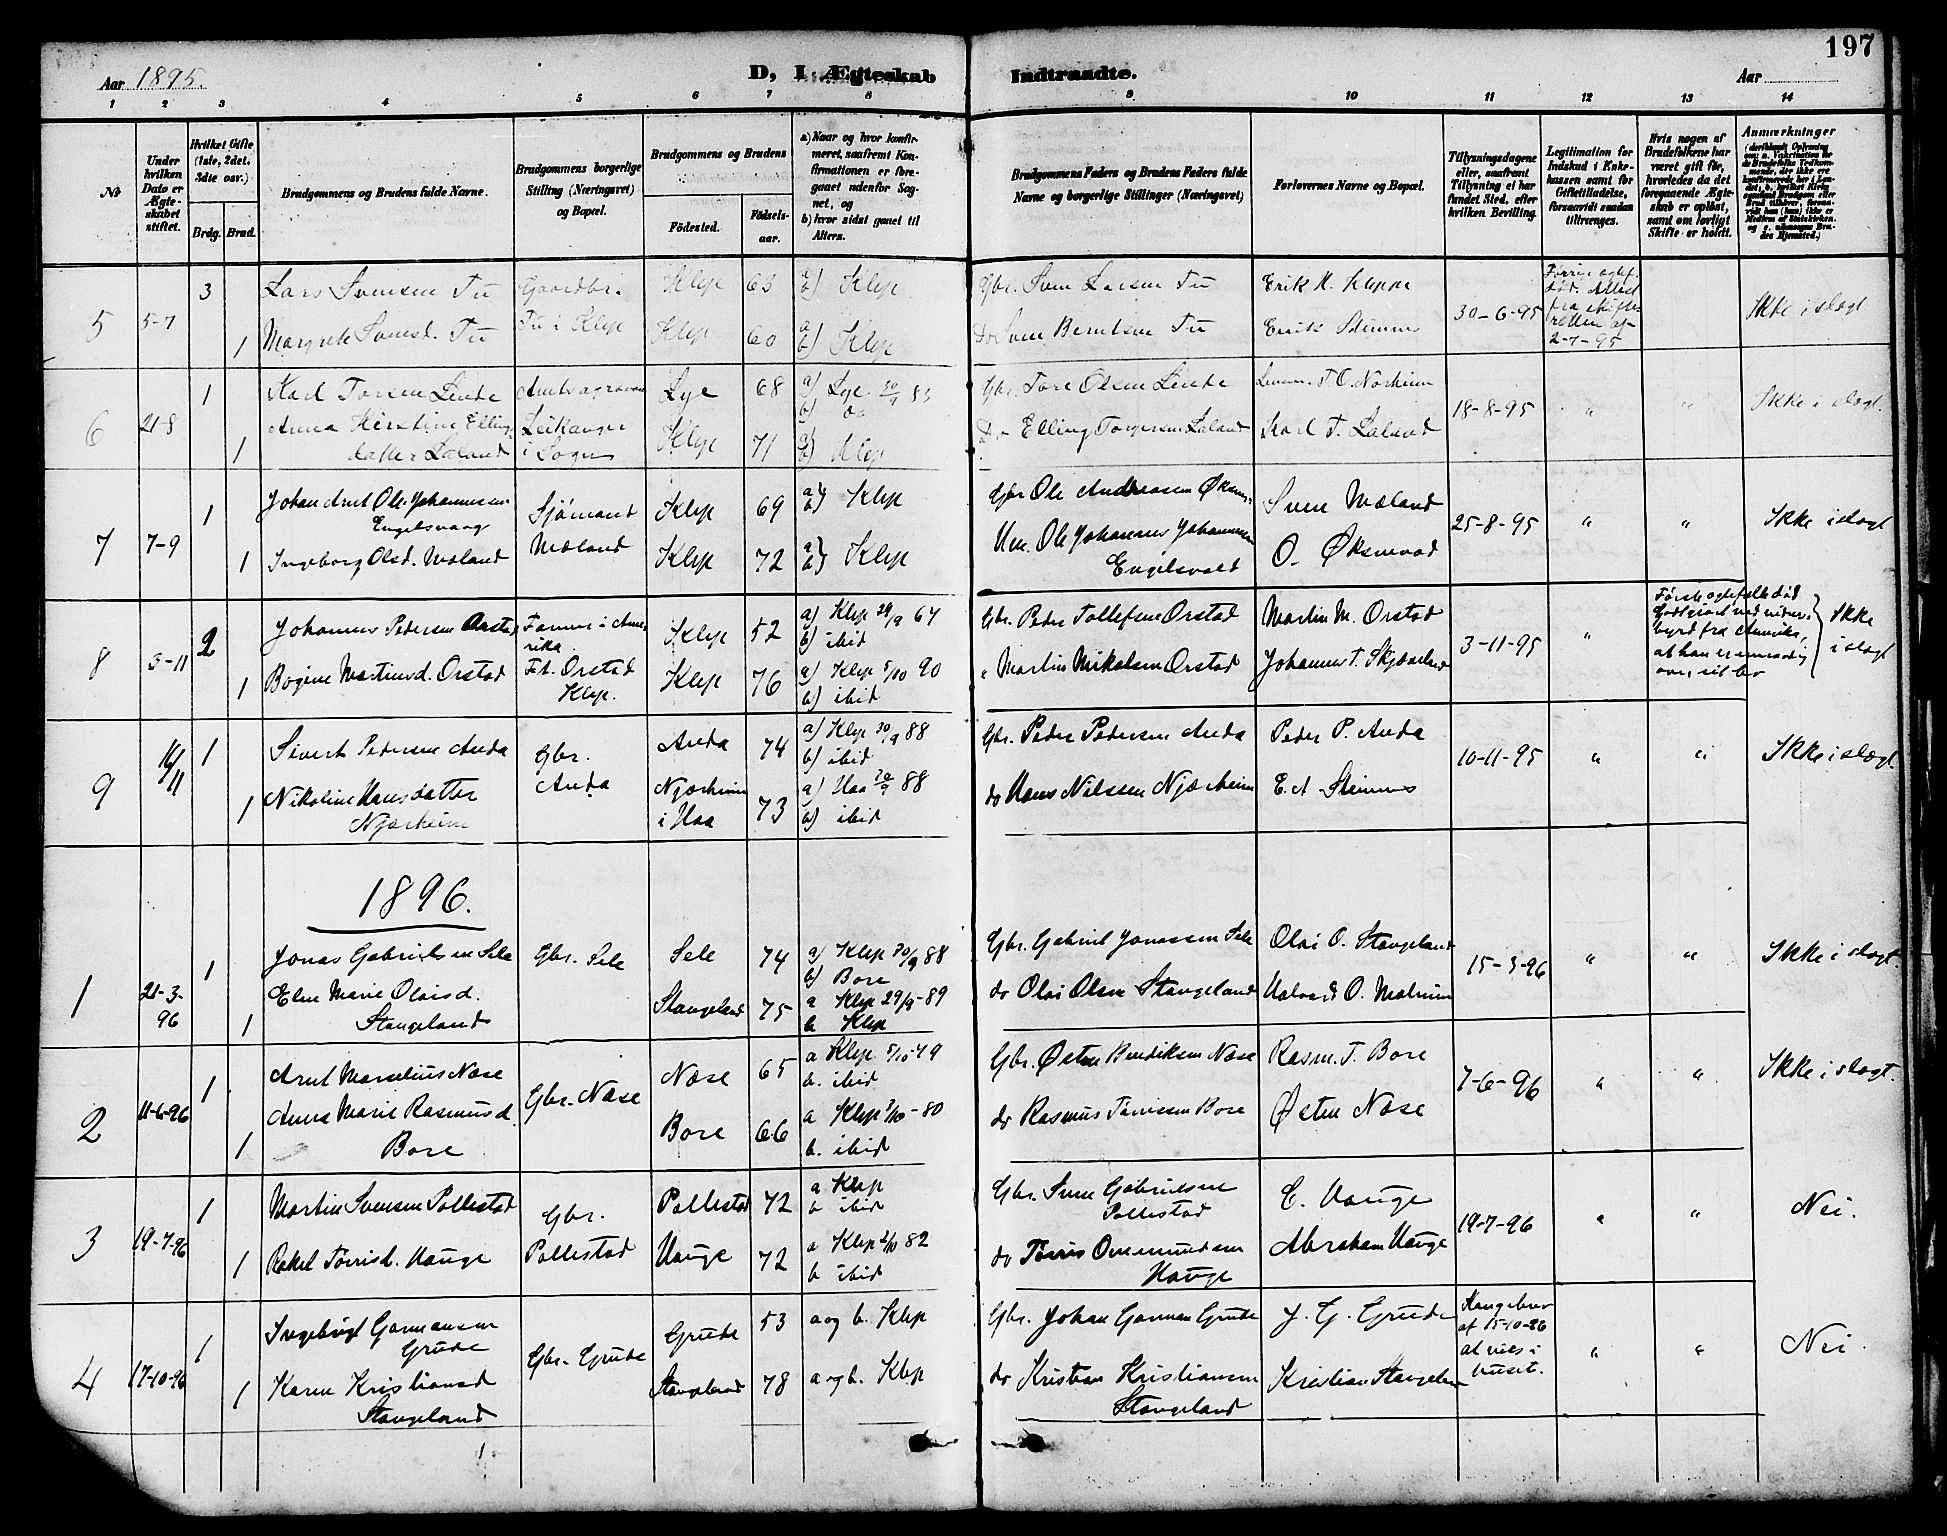 197
Aar 1895.
D, I Ægteskab
Indtraadte.
Aar
1 2 3 4 5 6 7 8 9 10 11 12 13 14
No
Under hvilken Dato er Ægteskabet stiftet.
Hvilket Gifte (1ste, 2det, 3die osv.)
Brdg. Brud.
Brudgommens og Brudens fulde Navne.
Brudgommens borgerlige Stilling (Næringsvei) og Bopæl.
Brudgommens og Brudens
Födested.
Födselsaar.
a) Naar og hvor konfirmeret, saafremt Konfirmationen er foregaaet udenfor Sognet, og
b) hvor sidst gaaet til Alters.
Brudgommens Faders og Brudens Faders fulde Navne og borgerlige Stillinger (Næringsvei)
Forlovernes Navne og Bopæl.
Tillysningsdagene eller, saafremt Tillysning ei har fundet Sted, efter hvilken Bevilling.
Legitimation for Indskud i Enkekassen samt for Giftetilladelse, forsaavidt saadan tiltrænges.
Hvis nogen af Brudefolkene har været gift før, hvorledes da det foregaaende Ægteskab er opløst, samt om lovligt Skifte er holdt.
Anmærkninger
5 5-7 3 Lars Svensen Tu Gaardbr. Klep 63 a) b) Klep Gbr. Sven Larsen Tu Erik H. Kleppe 30-6-95 fra skifteretten af 2-7-95 Ikke i slægt
1 Margrete Svensd. Tu Tu i Klep Klep 60 a) b) Klep Do Sven Berntsen Tu Erik Stimnes
6 21-8 1 Karl Torsen Linde Amtsagronom Lye 68 a) Lye 30/9 83 b) do Gbr. Tore Olsen Linde Lensm. T. O. Norheim 18-8-95 " " Ikke i slægt.
1 Anna Kirstine Ellingdatter Laland Leikanger i Sogn Klep 71 a) b) Klep Do Elling Torgersen Laland Karl T. Laland
7 7-9 1 Johan Arnt Ole Johannesen Engelsvaag Sjømand Klep 69 a) b) Klep Gbr Ole Andreasen Øksne- Sven Mæland 25-8-95 " " Ikke i slægt
1 Ingeborg Olsd. Mæland Mæland Klep 72 a) b) Klep Ole Johannes Johannesen Engelsvold O. Øksnevad
8 3-11 2 Johannes Pedersen Orstad Farmer i Amerika Klep 52 a) Klep 29/9 67 b) ibid Gbr. Peder Tollefsen Orstad Martin M. Orstad 3-11-95 " Første ægtefælle död Godtgjort ved vidnesbyrd fra Amerika, at han er enraadig over sit bo Ikke i slægt
1 Bogine Martinsd. Orstad Ft. Orstad Klep. Klep 76 a) Klep 5/10 90 b) ibid " Martin Mikalsen Orstad Johannes T. Skjæveland
9 16/11 1 Sivert Pedersen Anda Gbr. Anda Anda 74 a) Klep 30/9 88 b) ibid Gbr. Peder Pedersen Anda Peder P. Anda 10-11-95 " " Ikke i slægt
1 Nikoline Hansdatter Njærheim Njærheim i Haa 73 a) Haa 30/9 88 b) ibid do Hans Nilssen Njærheim E. A Stimnes
1896.
1 21-3-96 1 Jonas Gabrielsen Sele Gbr. Sele Sele 74 a) Klep 30/9 88 b) Bore Gbr. Gabriel Jonassen Sele Olai O. Stangeland 15-3-96 " " Ikke i slægt.
1 Elen Marie Olaisd. Stangeland Stangeland 75 a Klep 29/9-89 b Klep do Olai Olsen Stangeland Halvard O. Malmin
2 11-6-96 1 Arnt Marselius Næse Gbr. Næse Næse 65 a Klep 5/10-79 b. ibid Gbr. Østen Bendiksen Næse Rasm. T. Bore 7-6-96 " " Ikke i slægt.
1 Anna Marie Rasmusd. Bore Bore 66 a Klep 3/10-80 b. ibid do Rasmus Tørrissen Bore Østen Næse
3 19-7-96 1 Martin Svensen Pollestad Gbr. Pollestad Pollestad 72 a Klep b ibid Gbr. Sven Gabrielsen Pollestad E. Hauge 19-7-96 " " Nei.
1 Rakel Tørrisd. Hauge Hauge 72 a Klep 2/10 82 b ibid do Tørris Ommundsen Hauge Abraham Hauge
4 17-10-96 1 Ingebrigt Garmansen Grude Gbr. Grude Grude 53 a og b. Klep Gbr. Johan Garman Grude J. G. Grude Kongebrev af 15-10-96 at vies i huset. " " Nei.
1 Karen Kristiansd Stangeland Stangeland 78 a og b. Klep do Kristian Kristiansen Stangeland Kristian Stangeland